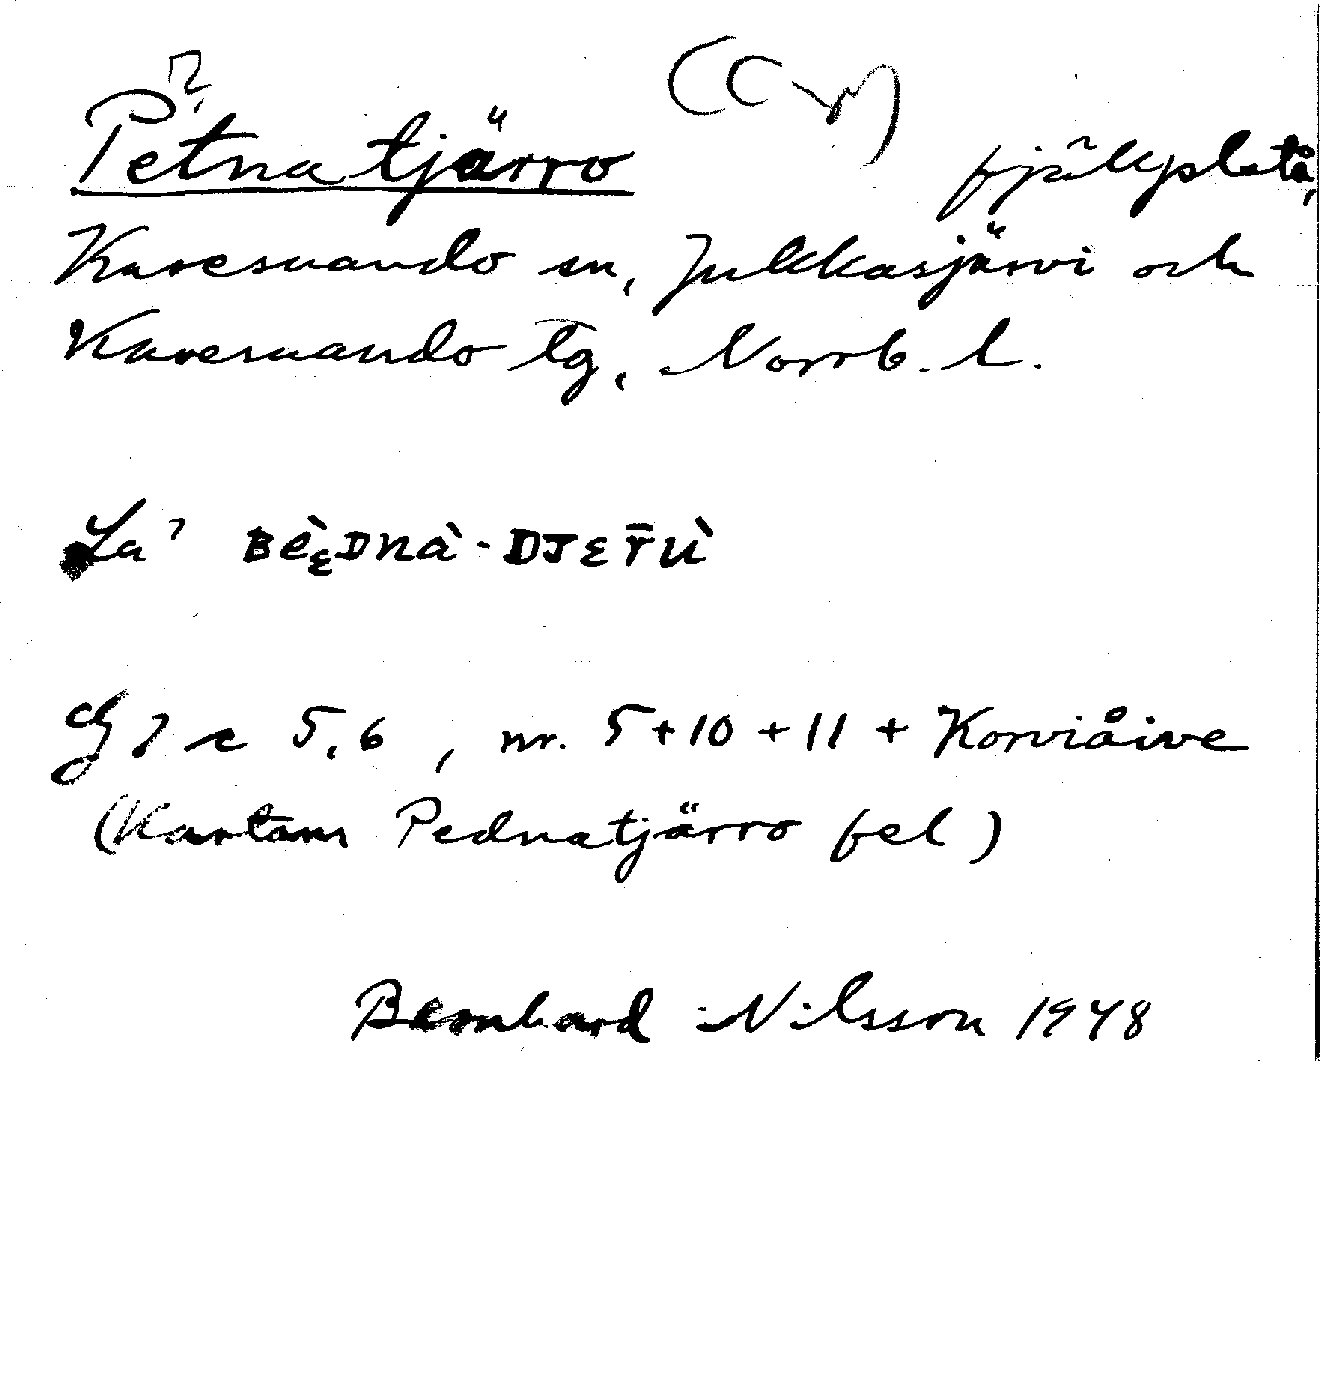 ?
Petnatjärro fjällplatå,
Karesuando sn, Jukkasjärvi och
Karesuando tg, Norrb. l.
La' BÈƐDNÀ-DJƐR̄Ù
G 7 c 5,6, nr. 5+10+11+Korviåive
(Kartans Pednatjärro fel)
Bernhard Nilsson 1948